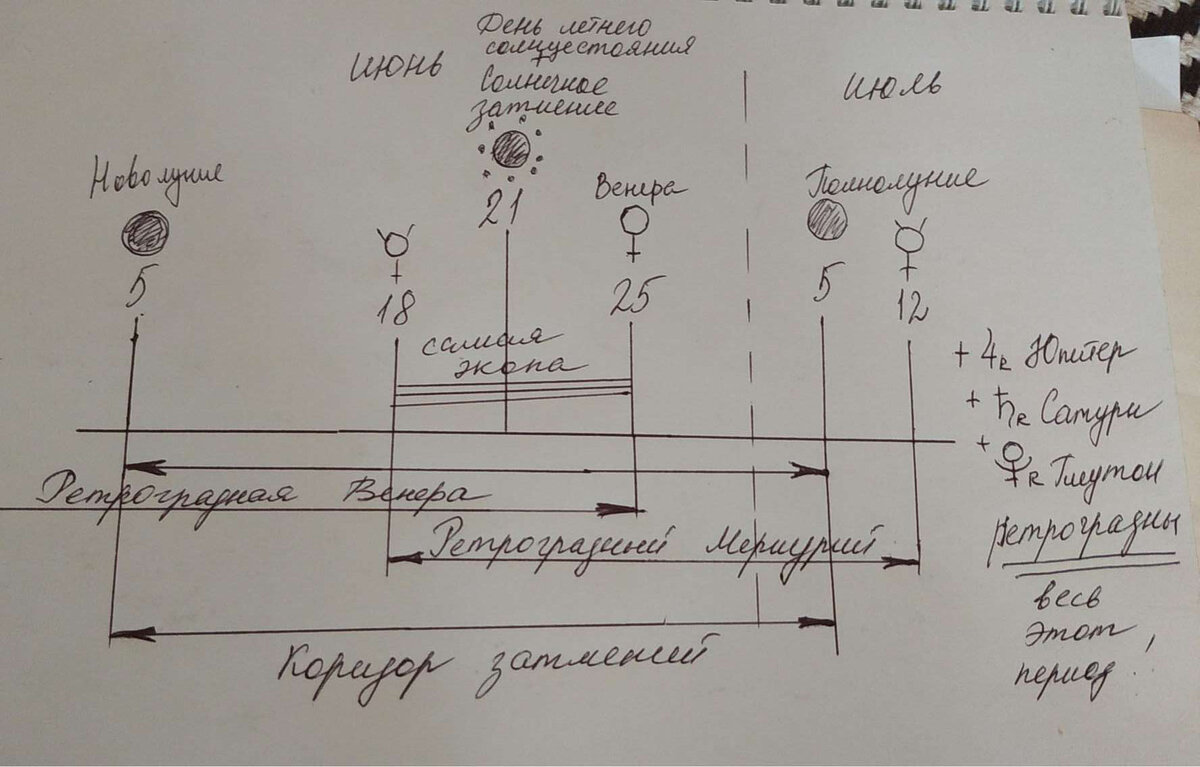 День летнего
солнцестояния
+
Солнечное
затмение
ИЮНЬ
ИЮЛЬ
Новолуние
5
18
21
Венера
25
Полнолуние
5
12
самая
жопа
+ ♃R Юпитер
+ ♄R Сатурн
+ R Плутон
Ретроградны
весь
этот
период!
Ретроградная Венера
Ретроградный Меркурий
Коридор затмений